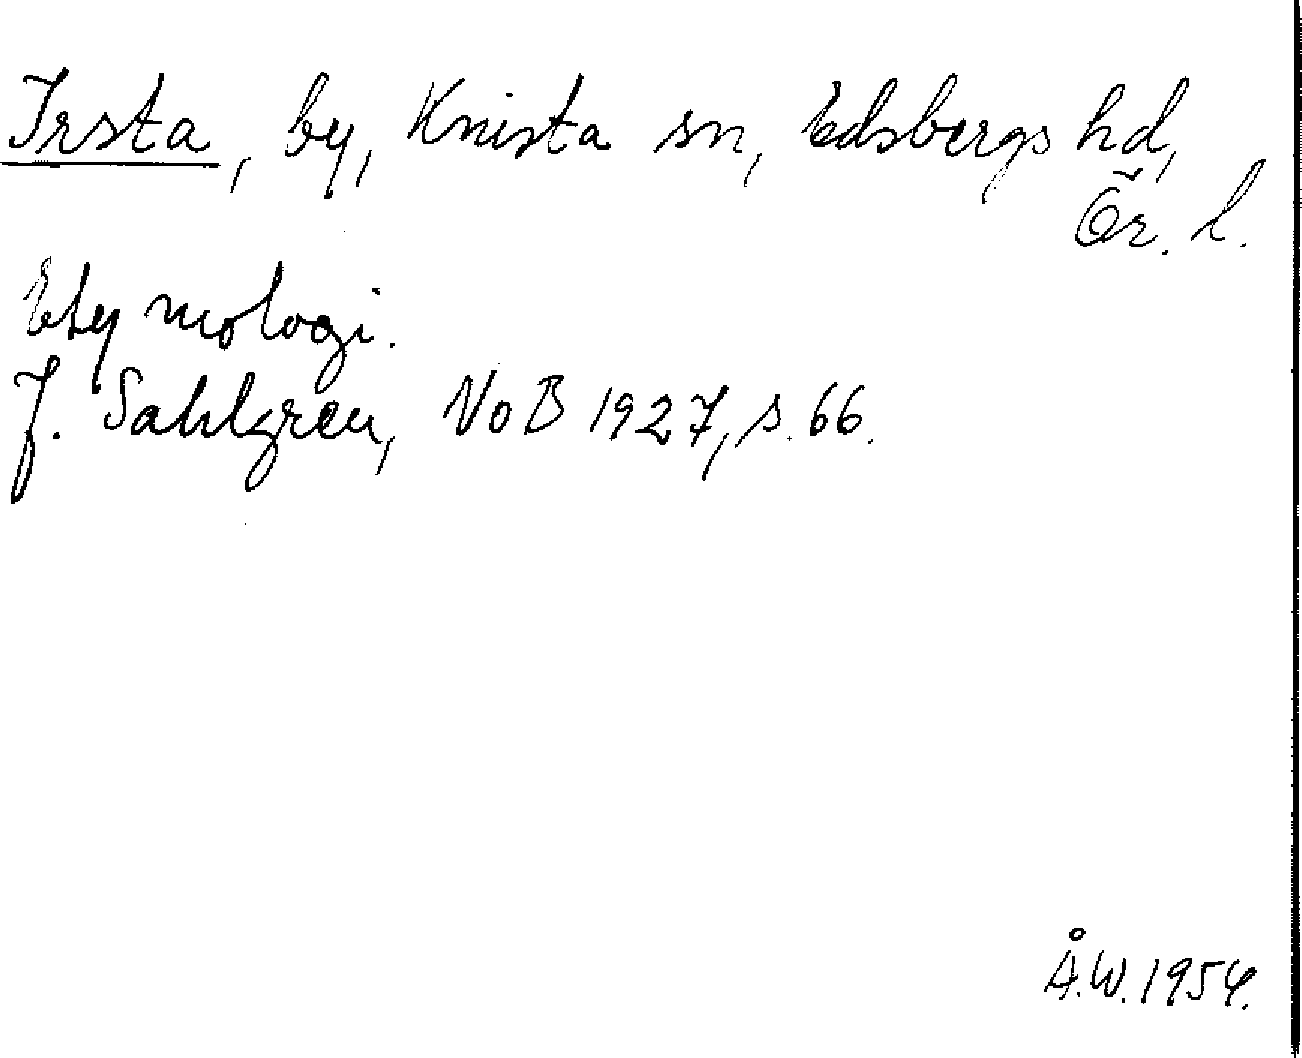 Irsta, by, Knista sn, Edsbergs hd,
Ör. l.
Etymologi.
J. Sahlgren, NoB 1927, s. 66.
Å.W. 1954.